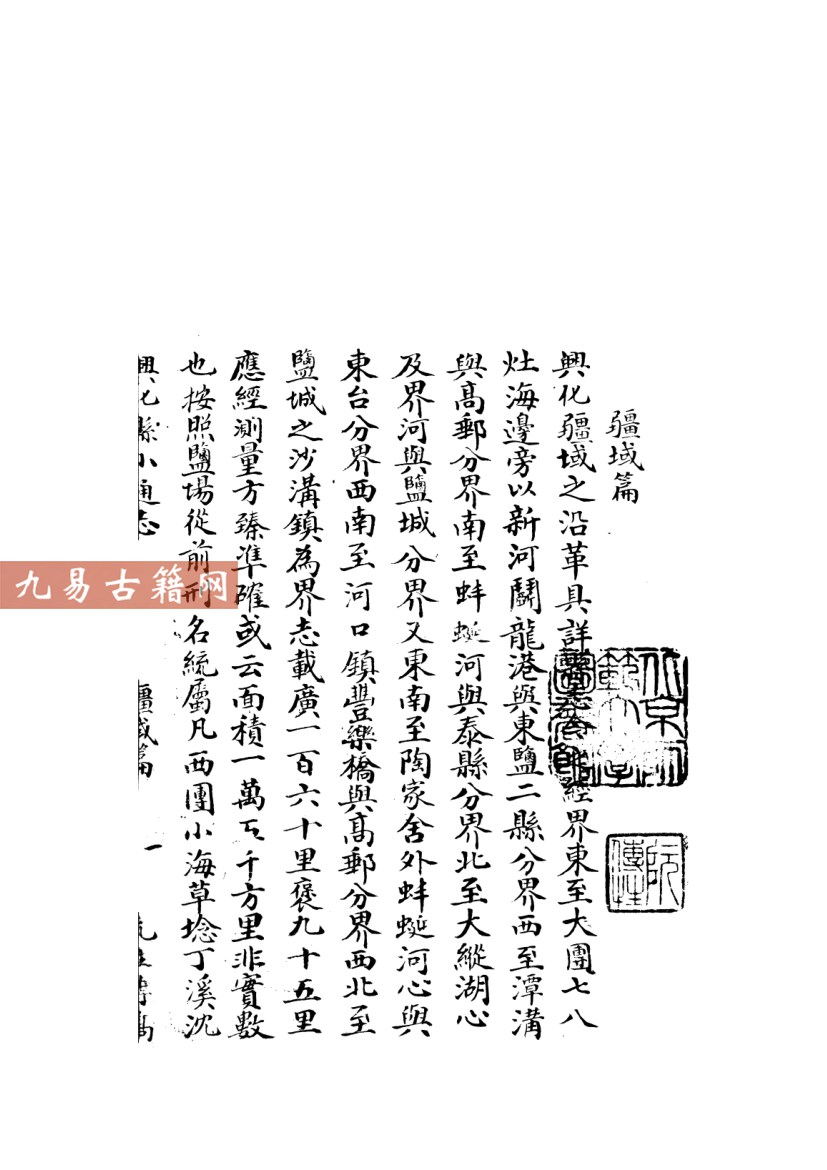 疆域篇
興化疆域之沿革具詳經界東至大團七八
灶海邊旁以新河鬭龍港與東鹽二縣分界西至潭溝
與髙郵分界南至蚌蜒河與泰縣分界北至大縱湖心
及界河與鹽城分界又東南至陶家舍外蚌蜒河心與
東台分界西南至河口鎮豐樂橋與髙郵分界西北至
鹽城之沙溝鎮為界志載廣一百六十里袤九十五里
應經測量方臻準確或云面積一萬五千方里非實數
也按照鹽場從前刑名統屬凡西團小海草埝丁溪沈
興化縣小通志 疆域篇 一
九易古籍网